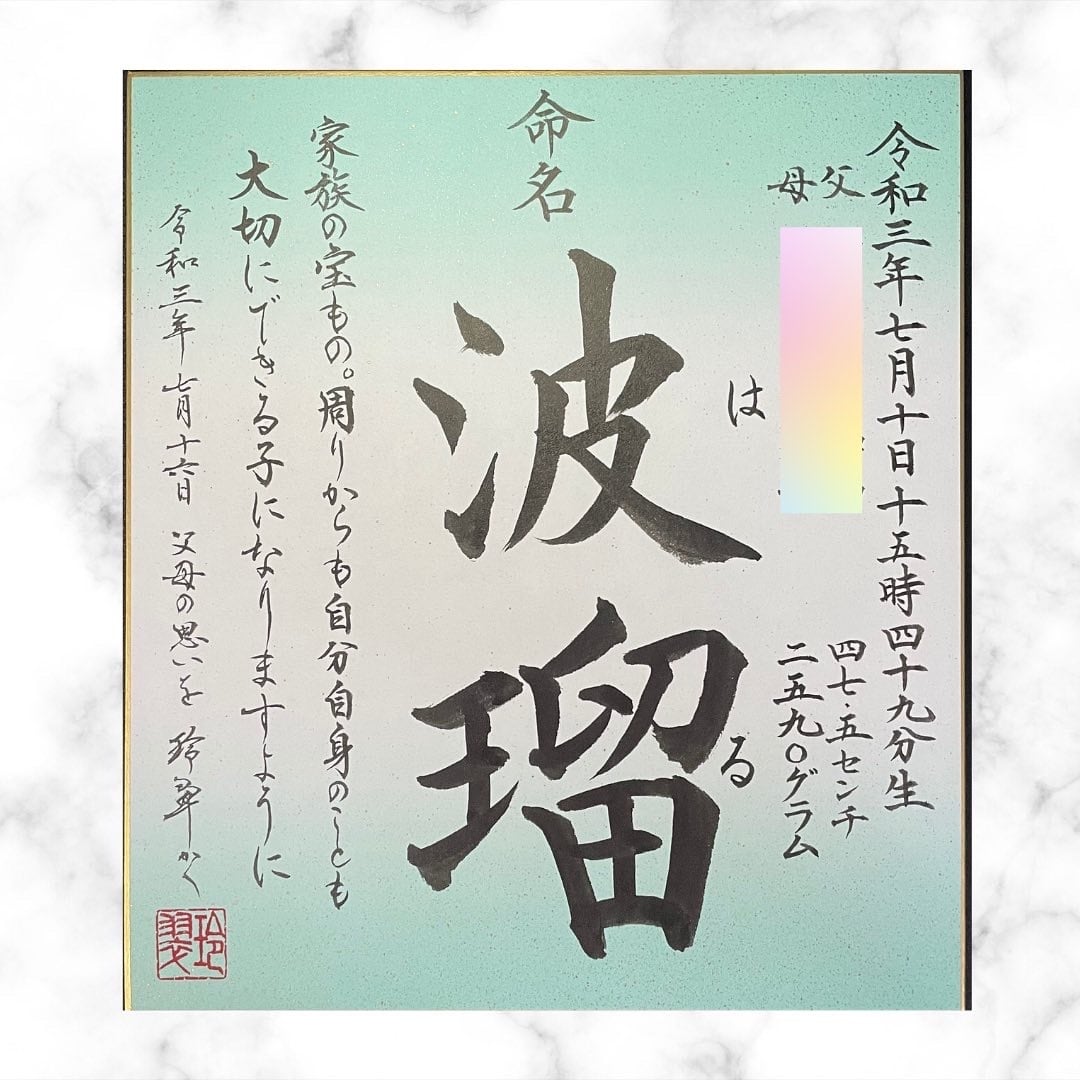 令和三年七月十日十五時四十九分生
四七・五センチ
二五九〇グラム
父
母
命名
波瑠
はる
家族の宝もの。周りからも自分自身のことも
大切にできる子になりますように
令和三年七月十六日 父母の思いを 玲翠かく
玲翠